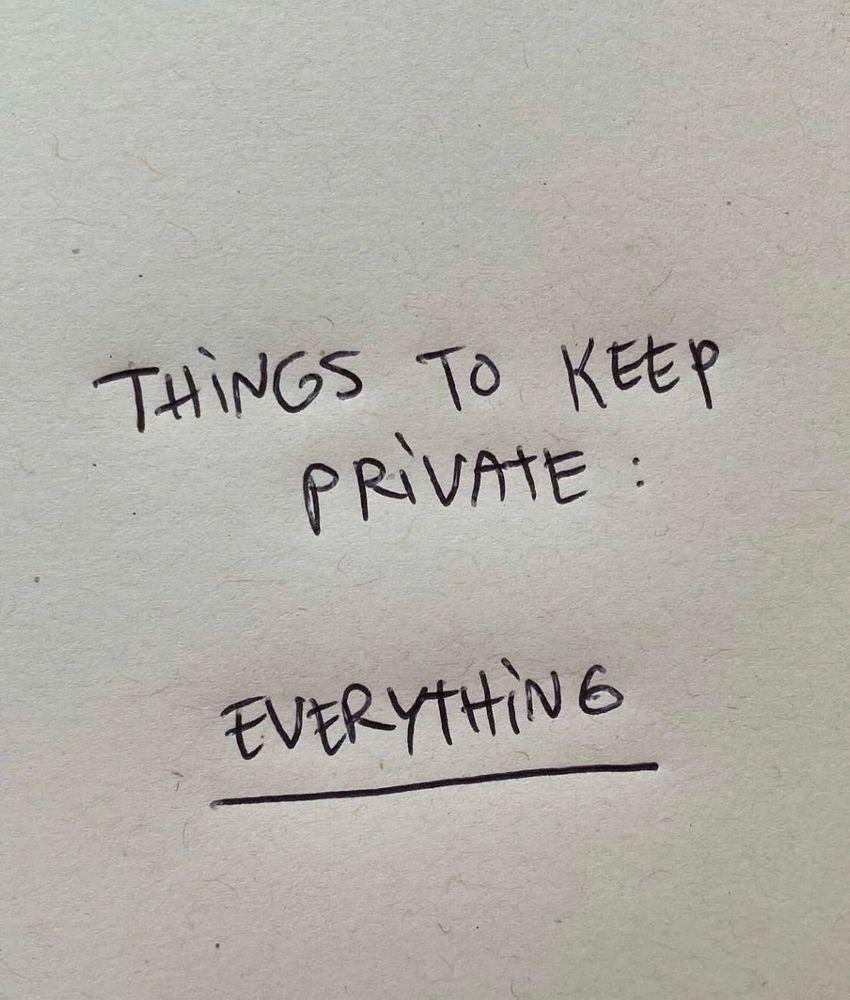 THiNGS TO KEEP
PRiVATE :
EVERYTHiNG